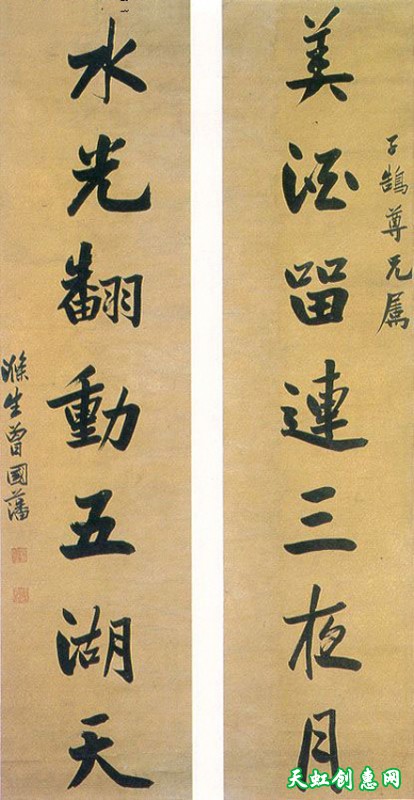 美酒留連三夜月
子鵠尊兄属
水光翻動五湖天
滌生曾國藩
天虹创惠网